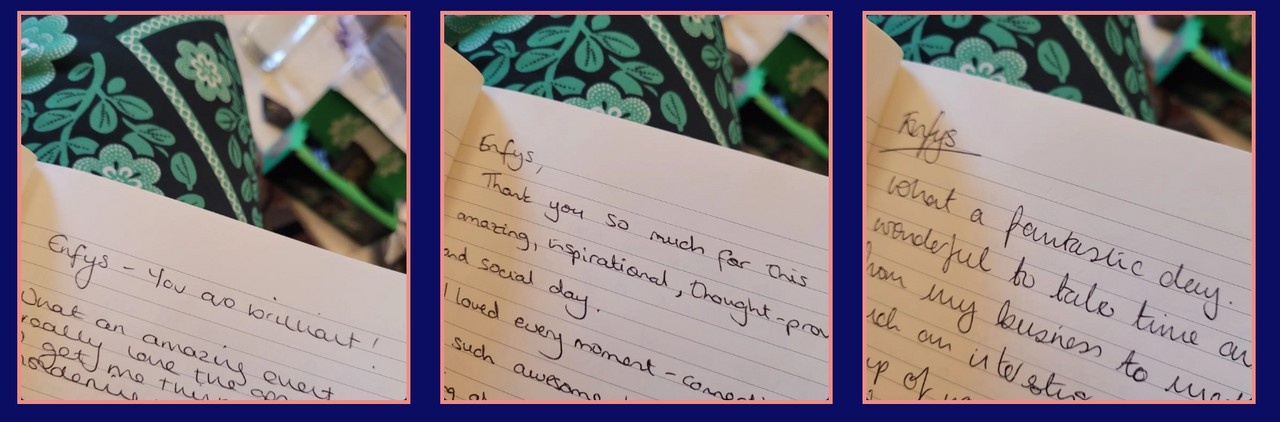 Enfys - You are brilliant!
What an amazing event
really love the
get me
Enfys,
Thank you so much for this
amazing, inspirational, thought-prov
nd social day.
I loved every moment - connecti
such awesome
Enfys
What a fantastic day.
wonderful to take time
my business to
ch an interesting
up of